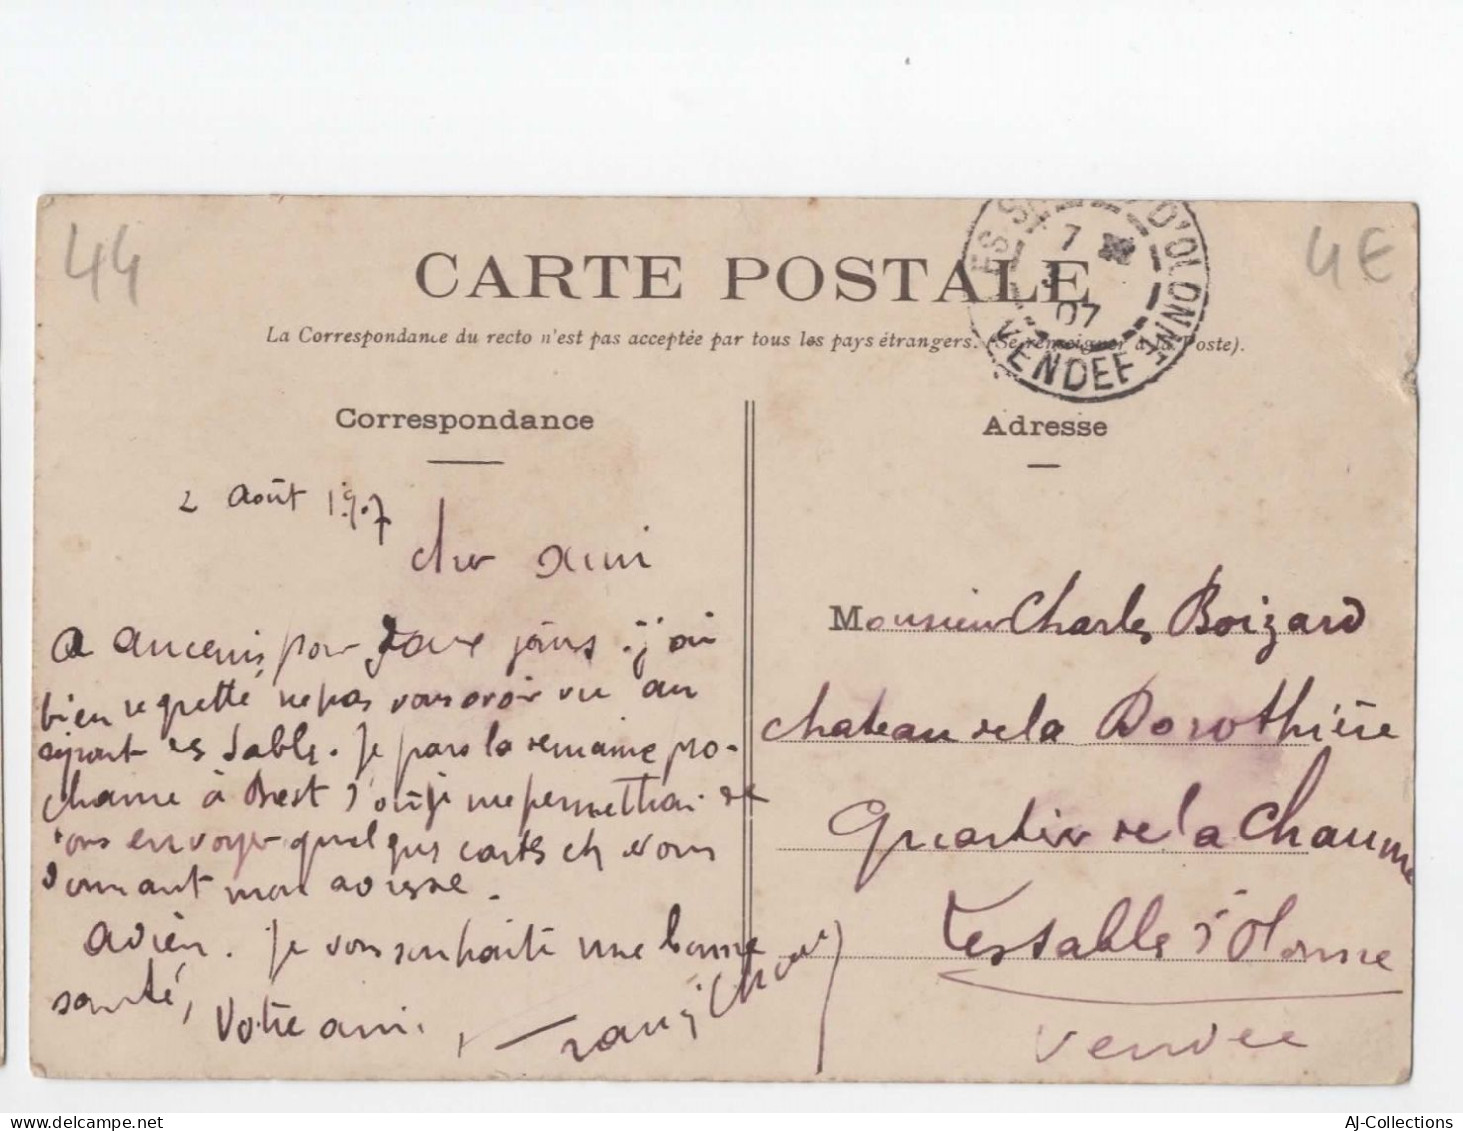 44
4€
CARTE POSTALE
ES SA D'OLONNE
7
3
07
VENDEE
La Correspondance du recto n'est pas acceptée par tous les pays étrangers. (Se renseigner à la Poste).
Correspondance
Adresse
2 Août 1907
cher ami
A Ancenis pour jours. j'ai
bien regretté ne pas vous avoir vu au
des Sable. Je pars la semaine pro-
chaine à Brest d'où je me permettrai de
vous envoyer quelques cartes en vous
donnant mon adresse.
Adieu. Je vous souhaite une bonne
santé,
Votre ami.
Monsieur Charles Boizard
chateau de la Dorothière
Quartier de la Chaume
Les sable d'Olonne
Vendee
delcampe.net
AJ-Collections